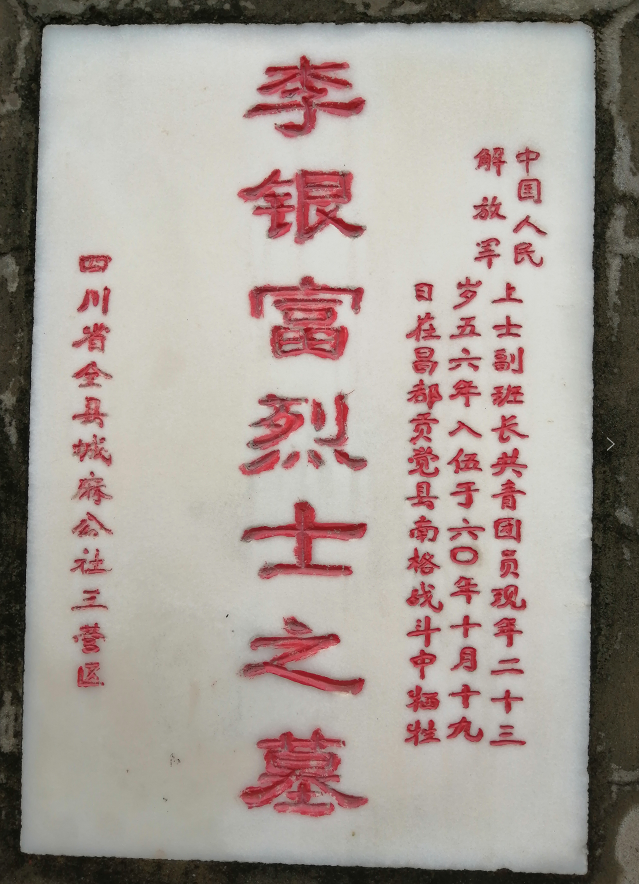 中国人民
解放军
上士副班长共青团员现年二十三
岁五六年入伍于六〇年十月十九
日在昌都贡觉县南格战斗中牺牲
李银富烈士之墓
四川省全县城麻公社三营区